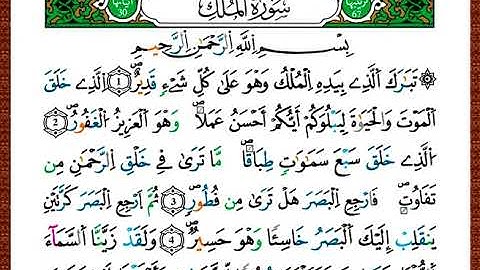 آياتها 30 سُورَةُ المُلْكِ رتيبها 67
بِسْمِ اللَّهِ الرَّحْمَٰنِ الرَّحِيمِ
تَبَارَكَ الَّذِي بِيَدِهِ الْمُلْكُ وَهُوَ عَلَىٰ كُلِّ شَيْءٍ قَدِيرٌ ﴿1﴾ الَّذِي خَلَقَ
الْمَوْتَ وَالْحَيَاةَ لِيَبْلُوَكُمْ أَيُّكُمْ أَحْسَنُ عَمَلًا وَهُوَ الْعَزِيزُ الْغَفُورُ ﴿2﴾
الَّذِي خَلَقَ سَبْعَ سَمَاوَاتٍ طِبَاقًا مَّا تَرَىٰ فِي خَلْقِ الرَّحْمَٰنِ مِن
تَفَاوُتٍ فَارْجِعِ الْبَصَرَ هَلْ تَرَىٰ مِن فُطُورٍ ﴿3﴾ ثُمَّ ارْجِعِ الْبَصَرَ كَرَّتَيْنِ
يَنقَلِبْ إِلَيْكَ الْبَصَرُ خَاسِئًا وَهُوَ حَسِيرٌ ﴿4﴾ وَلَقَدْ زَيَّنَّا السَّمَاءَ